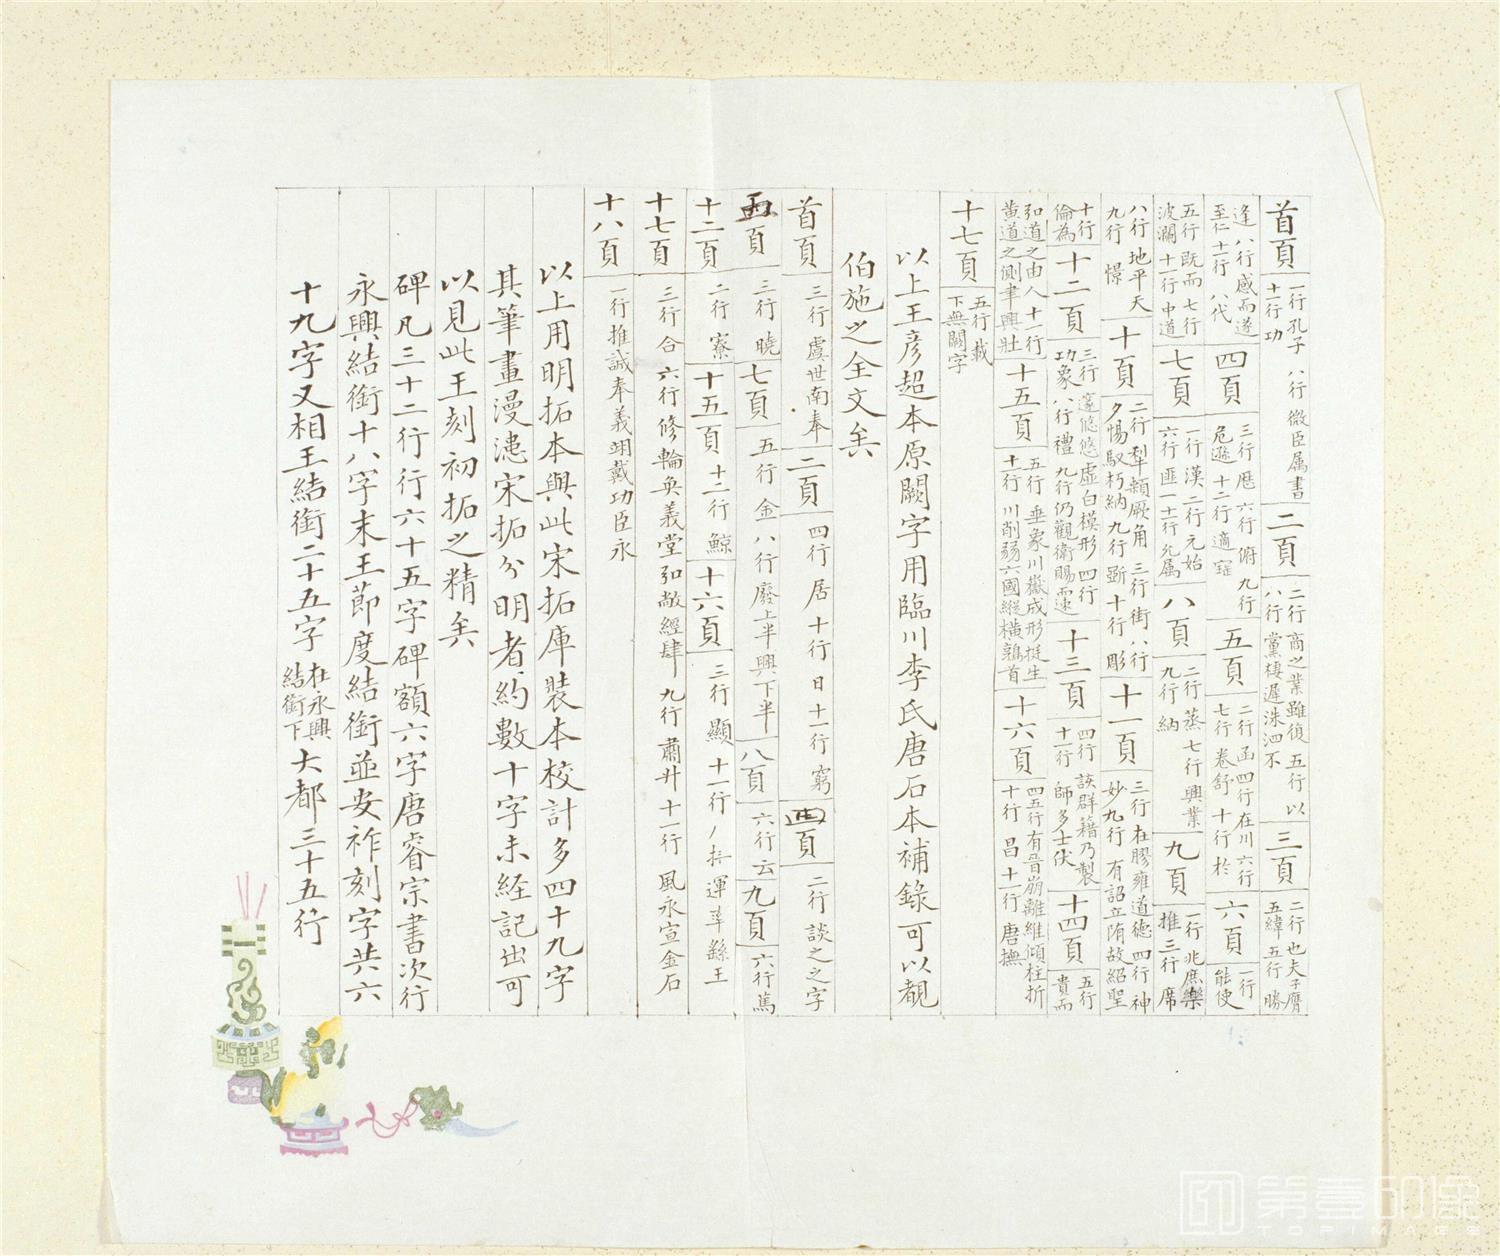 首頁 一行 孔子 八行 微臣属書 十一行 功 二頁 二行 商之業雖復 五行 以 八行 黨棲遲洙泗不 三頁 二行 也夫子膺五緯 五行 勝
逢 八行 感而遂 至仁 十一行 八代 四頁 三行 慝 六行 俯 九行 危遜 十二行 適 五頁 二行 函 四行 在川 六行 七行 卷舒 十行 於 六頁 一行 能使
五行 既而 七行 波瀾 十一行 中道 七頁 一行 漢 二行 元始 六行 匪一 十一行 允属 八頁 二行 蒸 七行 興業 九行 納 九頁 一行 兆庶樂推 三行 席
八行 地平天 九行 憬 十頁 二行 犁顙厥角 三行 街 八行 夕惕馭朽納 九行 斲 十行 彫 十一頁 三行 在膠雍道德 四行 神妙 九行 有詔立隋故紹聖
十行 倫為 十二頁 三行 邃悠悠虛白模形 四行 功象 八行 禮 九行 仍觀衛賜 十三頁 四行 該群籍乃製 十一行 師多士伏 十四頁 五行 貴而
弘道之由人 十一行 黄道之側聿興壯 十五頁 五行 垂象川嶽成形挺生 十一行 川削弱六國縱橫鶉首 十六頁 四五行 有晉崩離維傾柱折 十行 昌 十一行 唐撫
十七頁 五行 載下無闕字
以上王彦超本原闕字用臨川李氏唐石本補錄可以覩
伯施之全文矣
首頁 三行 虞世南奉 二頁 四行 居 十行 日 十一行 窮 四頁 二行 談之之字
五頁 三行 曉 七頁 五行 金 八行 廢上半興下半 八頁 六行 云 九頁 六行 篤
十二頁 二行 寮 十五頁 十二行 鯨 十六頁 三行 顯 十一行 運 王
十七頁 三行 合 六行 修輪奐義堂弘敞經肆 九行 肅升 十一行 風永宣金石
十八頁 一行 推誠奉義翊戴功臣永
以上用明拓本與此宋拓庫裝本校計多四十九字
其筆畫漫漶宋拓分明者約數十字未経記出可
以見此王刻初拓之精矣
碑凡三十二行行六十五字碑額六字唐睿宗書次行
永興結銜十八字末王節度結銜並安祚刻字共六
十九字又相王結銜二十五字 在永興結銜下 大都三十五行
第壹印像
TOPIMAGE